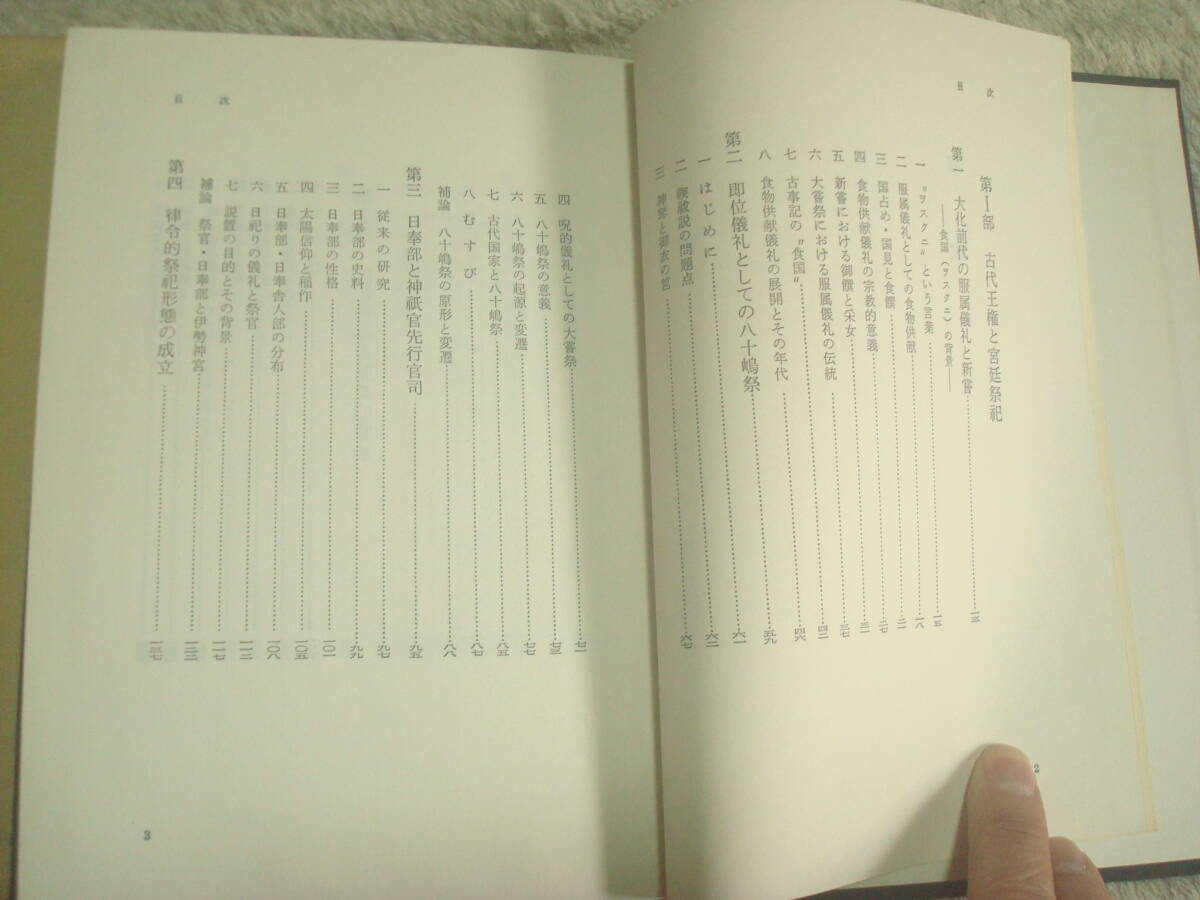 目次
第Ⅰ部 古代王権と宮廷祭祀
第一 大化前代の服属儀礼と新嘗……一三
――食国(ヲスクニ)の背景――
一 〝ヲスクニ〟という言葉……一五
二 服属儀礼としての食物供献……一八
三 国占め・国見と食饌……二一
四 食物供献儀礼の宗教的意義……二七
五 新嘗における御饌と采女……三一
六 大嘗祭における服属儀礼の伝統……三七
七 古事記の〝食国〟……四二
八 食物供献儀礼の展開とその年代……四六
……五九
第二 即位儀礼としての八十嶋祭……六一
一 はじめに……六二
二 禊祓説の問題点……六七
三 神琴と御衣の筥
2
目次
四 呪的儀礼としての大嘗祭……七一
五 八十嶋祭の意義……七三
六 八十嶋祭の起源と変遷……七七
七 古代国家と八十嶋祭……八五
八 むすび……八七
補論 八十嶋祭の原形と変遷……八八
第三 日奉部と神祇官先行官司……九五
一 従来の研究……九七
二 日奉部の史料……九九
三 日奉部の性格……一〇一
四 太陽信仰と稲作……一〇五
五 日奉部・日奉舎人部の分布……一〇八
六 日祀りの儀礼と祭官……一一三
七 設置の目的とその背景……一一七
補論 祭官・日奉部と伊勢神宮……一二三
第四 律令的祭祀形態の成立……一三七
3